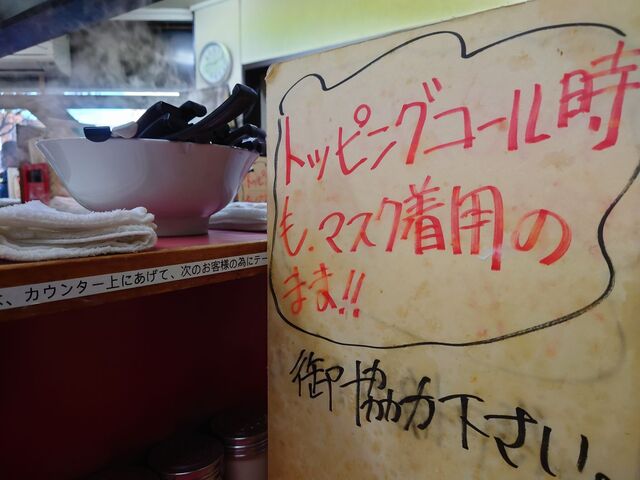 トッピングコール時
も、マスク着用の
まま!!
御協力下さい。
、カウンター上にあげて、次のお客様の為にテー